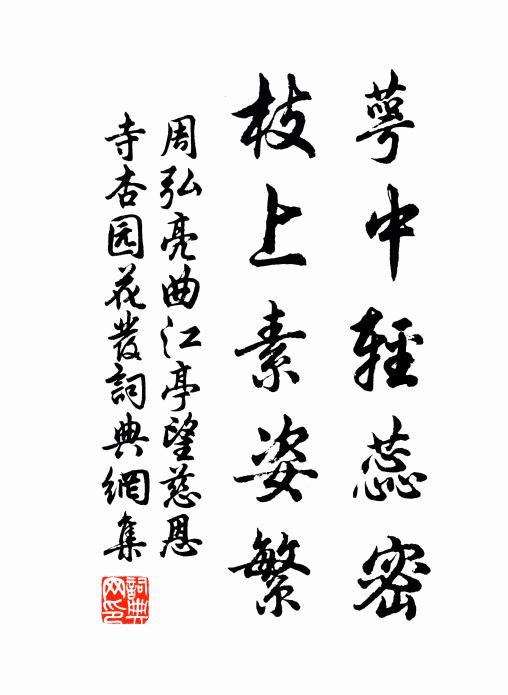 萼中輕蕊密
枝上素姿繁
周弘亮曲江亭望慈恩
寺杏园花發詞典網集
詞典網印